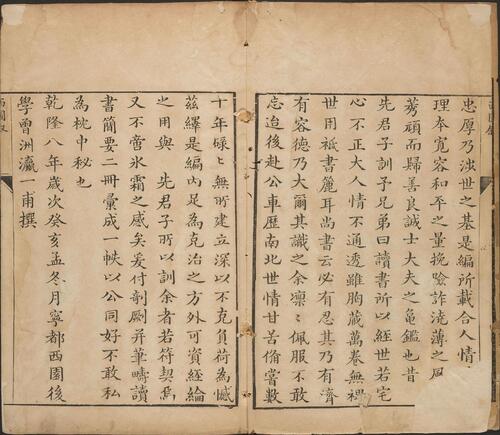 忠厚乃世之基是編所載合人情
理本寬容和平之量挽險詐澆薄之風
莠頑而歸善良誠士大夫之龜鑑也昔
先君子訓子兄弟曰讀書所以經世若宅
心不正大人情不通透雖胸藏萬卷無裨
世用祗書簏耳尚書云必有忍其乃有濟
有容德乃大爾其識之余凛〻佩服不敢
忘迨後赴公車歷南北世情甘苦備嘗數
十年碌〻無所建立深以不克負荷為憾
茲繹是編內足為克治之方外可資經綸
之用與 先君子所以訓余者若符契焉
又不啻氷霜之感矣爰付剞劂并筆疇讀
書簡要二冊彙成一帙以公同好不敢私
為枕中秘也
乾隆八年歲次癸亥孟冬月寧都西園後
學曾洲瀛一甫撰